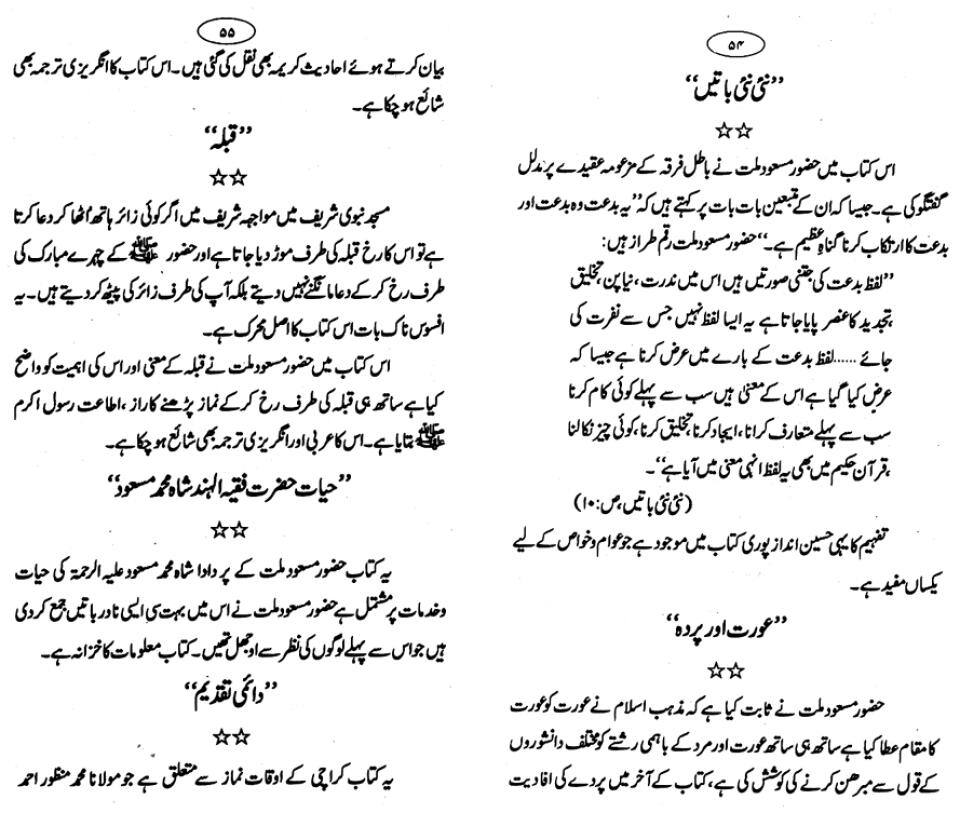 ۵۴
”نئی نئی باتیں“
☆☆
اس کتاب میں حضور مسعود ملت نے باطل فرقہ کے مزعومہ عقیدے پر مدلل
گفتگو کی ہے۔ جیسا کہ ان کے متبعین بات بات پر کہتے ہیں کہ ”یہ بدعت وہ بدعت اور
بدعت کا ارتکاب کرنا گناہِ عظیم ہے۔“ حضور مسعود ملت رقم طراز ہیں:
”لفظ بدعت کی جتنی صورتیں ہیں اس میں ندرت، نیا پن، تخلیق
،تجدید کا عنصر پایا جاتا ہے یہ ایسا لفظ نہیں جس سے نفرت کی
جائے ......لفظ بدعت کے بارے میں عرض کرنا ہے جیسا کہ
عرض کیا گیا ہے اس کے معنیٰ ہیں سب سے پہلے کوئی کام کرنا
سب سے پہلے متعارف کرانا، ایجاد کرنا، تخلیق کرنا، کوئی چیز نکالنا
،قرآن حکیم میں بھی یہ لفظ انہی معنی میں آیا ہے“۔
(نئی نئی باتیں، ص:۱۰)
تفہیم کا یہی حسین انداز پوری کتاب میں موجود ہے جو عوام و خواص کے لیے
یکساں مفید ہے۔
”عورت اور پردہ“
☆☆
حضور مسعود ملت نے ثابت کیا ہے کہ مذہب اسلام نے عورت کو عورت
کا مقام عطا کیا ہے ساتھ ہی ساتھ عورت اور مرد کے باہمی رشتے کو مختلف دانشوروں
کے قول سے مبرھن کرنے کی کوشش کی ہے، کتاب کے آخر میں پردے کی افادیت
۵۵
بیان کرتے ہوئے احادیث کریمہ بھی نقل کی گئی ہیں۔ اس کتاب کا انگریزی ترجمہ بھی
شائع ہو چکا ہے۔
”قبلہ“
☆☆
مسجد نبوی شریف میں مواجہہ شریف میں اگر کوئی زائر ہاتھ اُٹھا کر دعا کرتا
ہے تو اس کا رخ قبلہ کی طرف موڑ دیا جاتا ہے اور حضور ﷺ کے چہرے مبارک کی
طرف رخ کر کے دعا مانگنے نہیں دیتے بلکہ آپ کی طرف زائر کی پیٹھ کر دیتے ہیں۔ یہ
افسوس ناک بات اس کتاب کا اصل محرک ہے۔
اس کتاب میں حضور مسعود ملت نے قبلہ کے معنی اور اس کی اہمیت کو واضح
کیا ہے ساتھ ہی قبلہ کی طرف رخ کر کے نماز پڑھنے کا راز، اطاعت رسول اکرم
ﷺ بتایا ہے۔ اس کا عربی اور انگریزی ترجمہ بھی شائع ہو چکا ہے۔
”حیات حضرت فقیہ الہند شاہ محمد مسعود“
☆☆
یہ کتاب حضور مسعود ملت کے پر دادا شاہ محمد مسعود علیہ الرحمۃ کی حیات
و خدمات پر مشتمل ہے حضور مسعود ملت نے اس میں بہت سی ایسی نادر باتیں جمع کر دی
ہیں جو اس سے پہلے لوگوں کی نظر سے اوجھل تھیں۔ کتاب معلومات کا خزانہ ہے۔
”دائمی تقدیم“
☆☆
یہ کتاب کراچی کے اوقات نماز سے متعلق ہے جو مولانا محمد منظور احمد